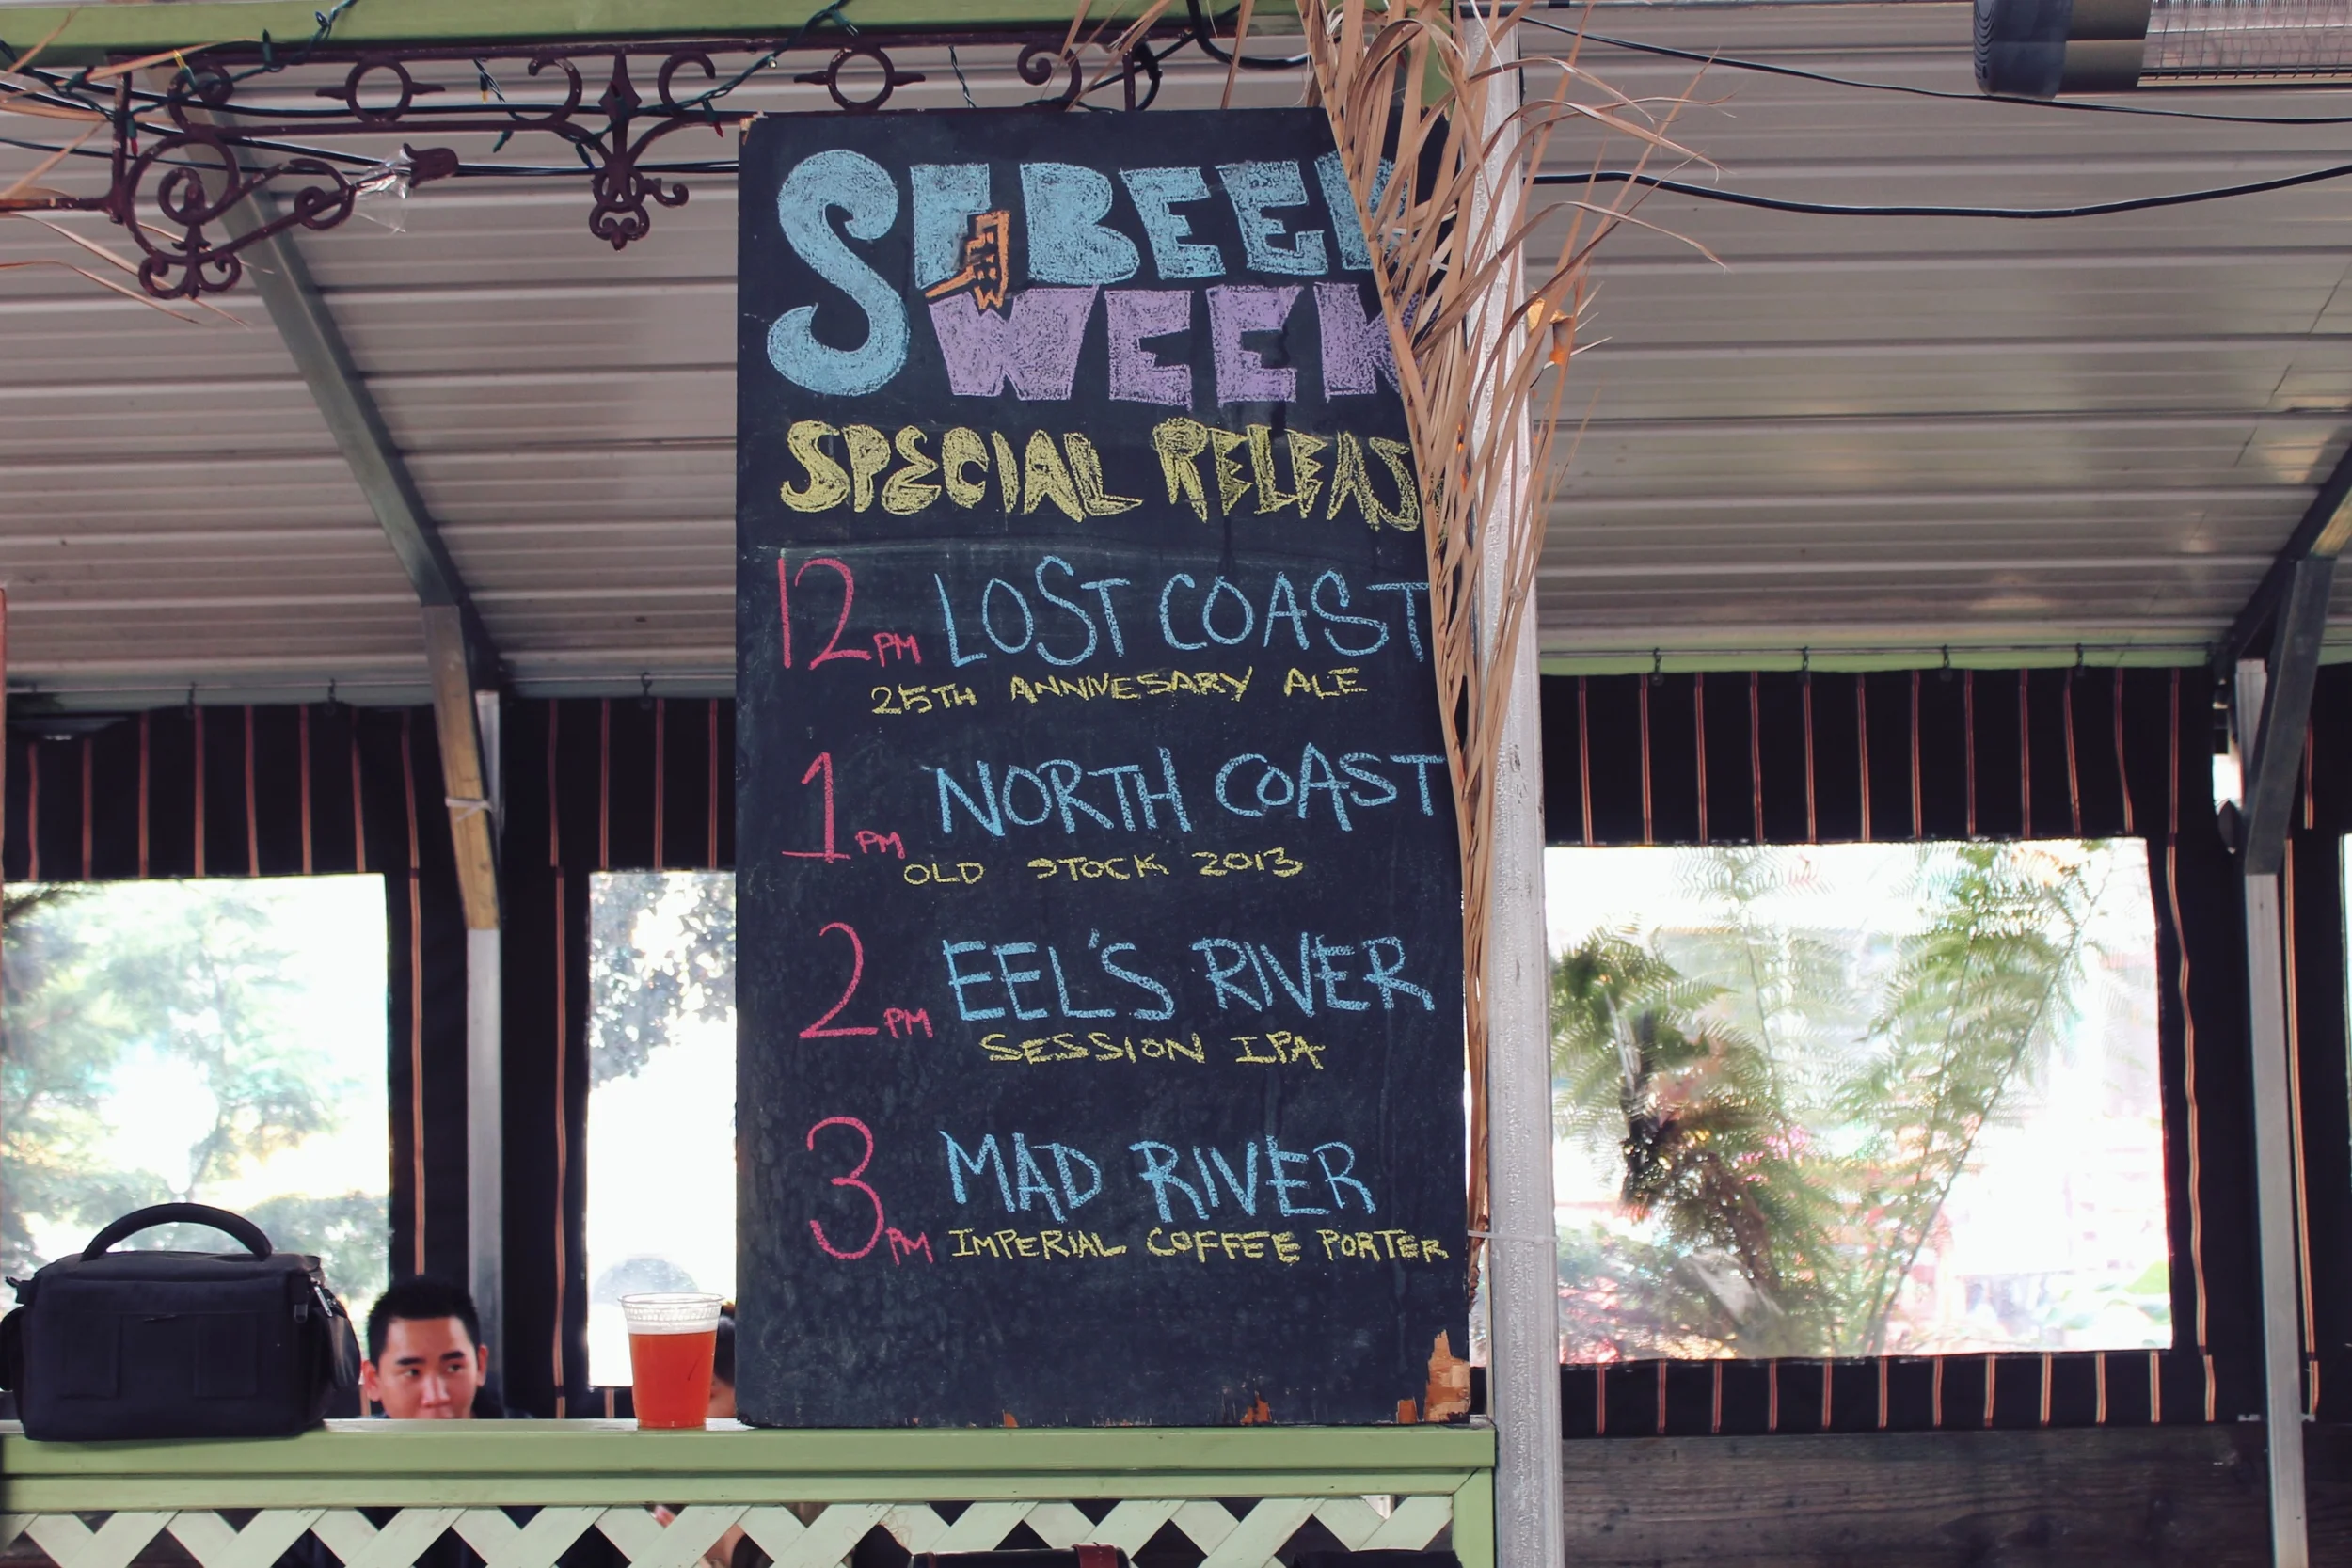 SF BEER
WEEK
SPECIAL RELEAS
12PM LOST COAST
25TH ANNIVESARY ALE
1PM NORTH COAST
OLD STOCK 2013
2PM EEL'S RIVER
SESSION IPA
3PM MAD RIVER
IMPERIAL COFFEE PORTER